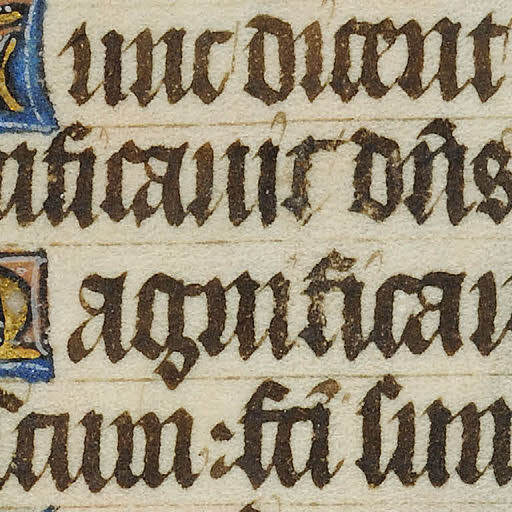 Tunc dicent
nificauit dn̄s
Magnificaui
scum: fc̄i sum